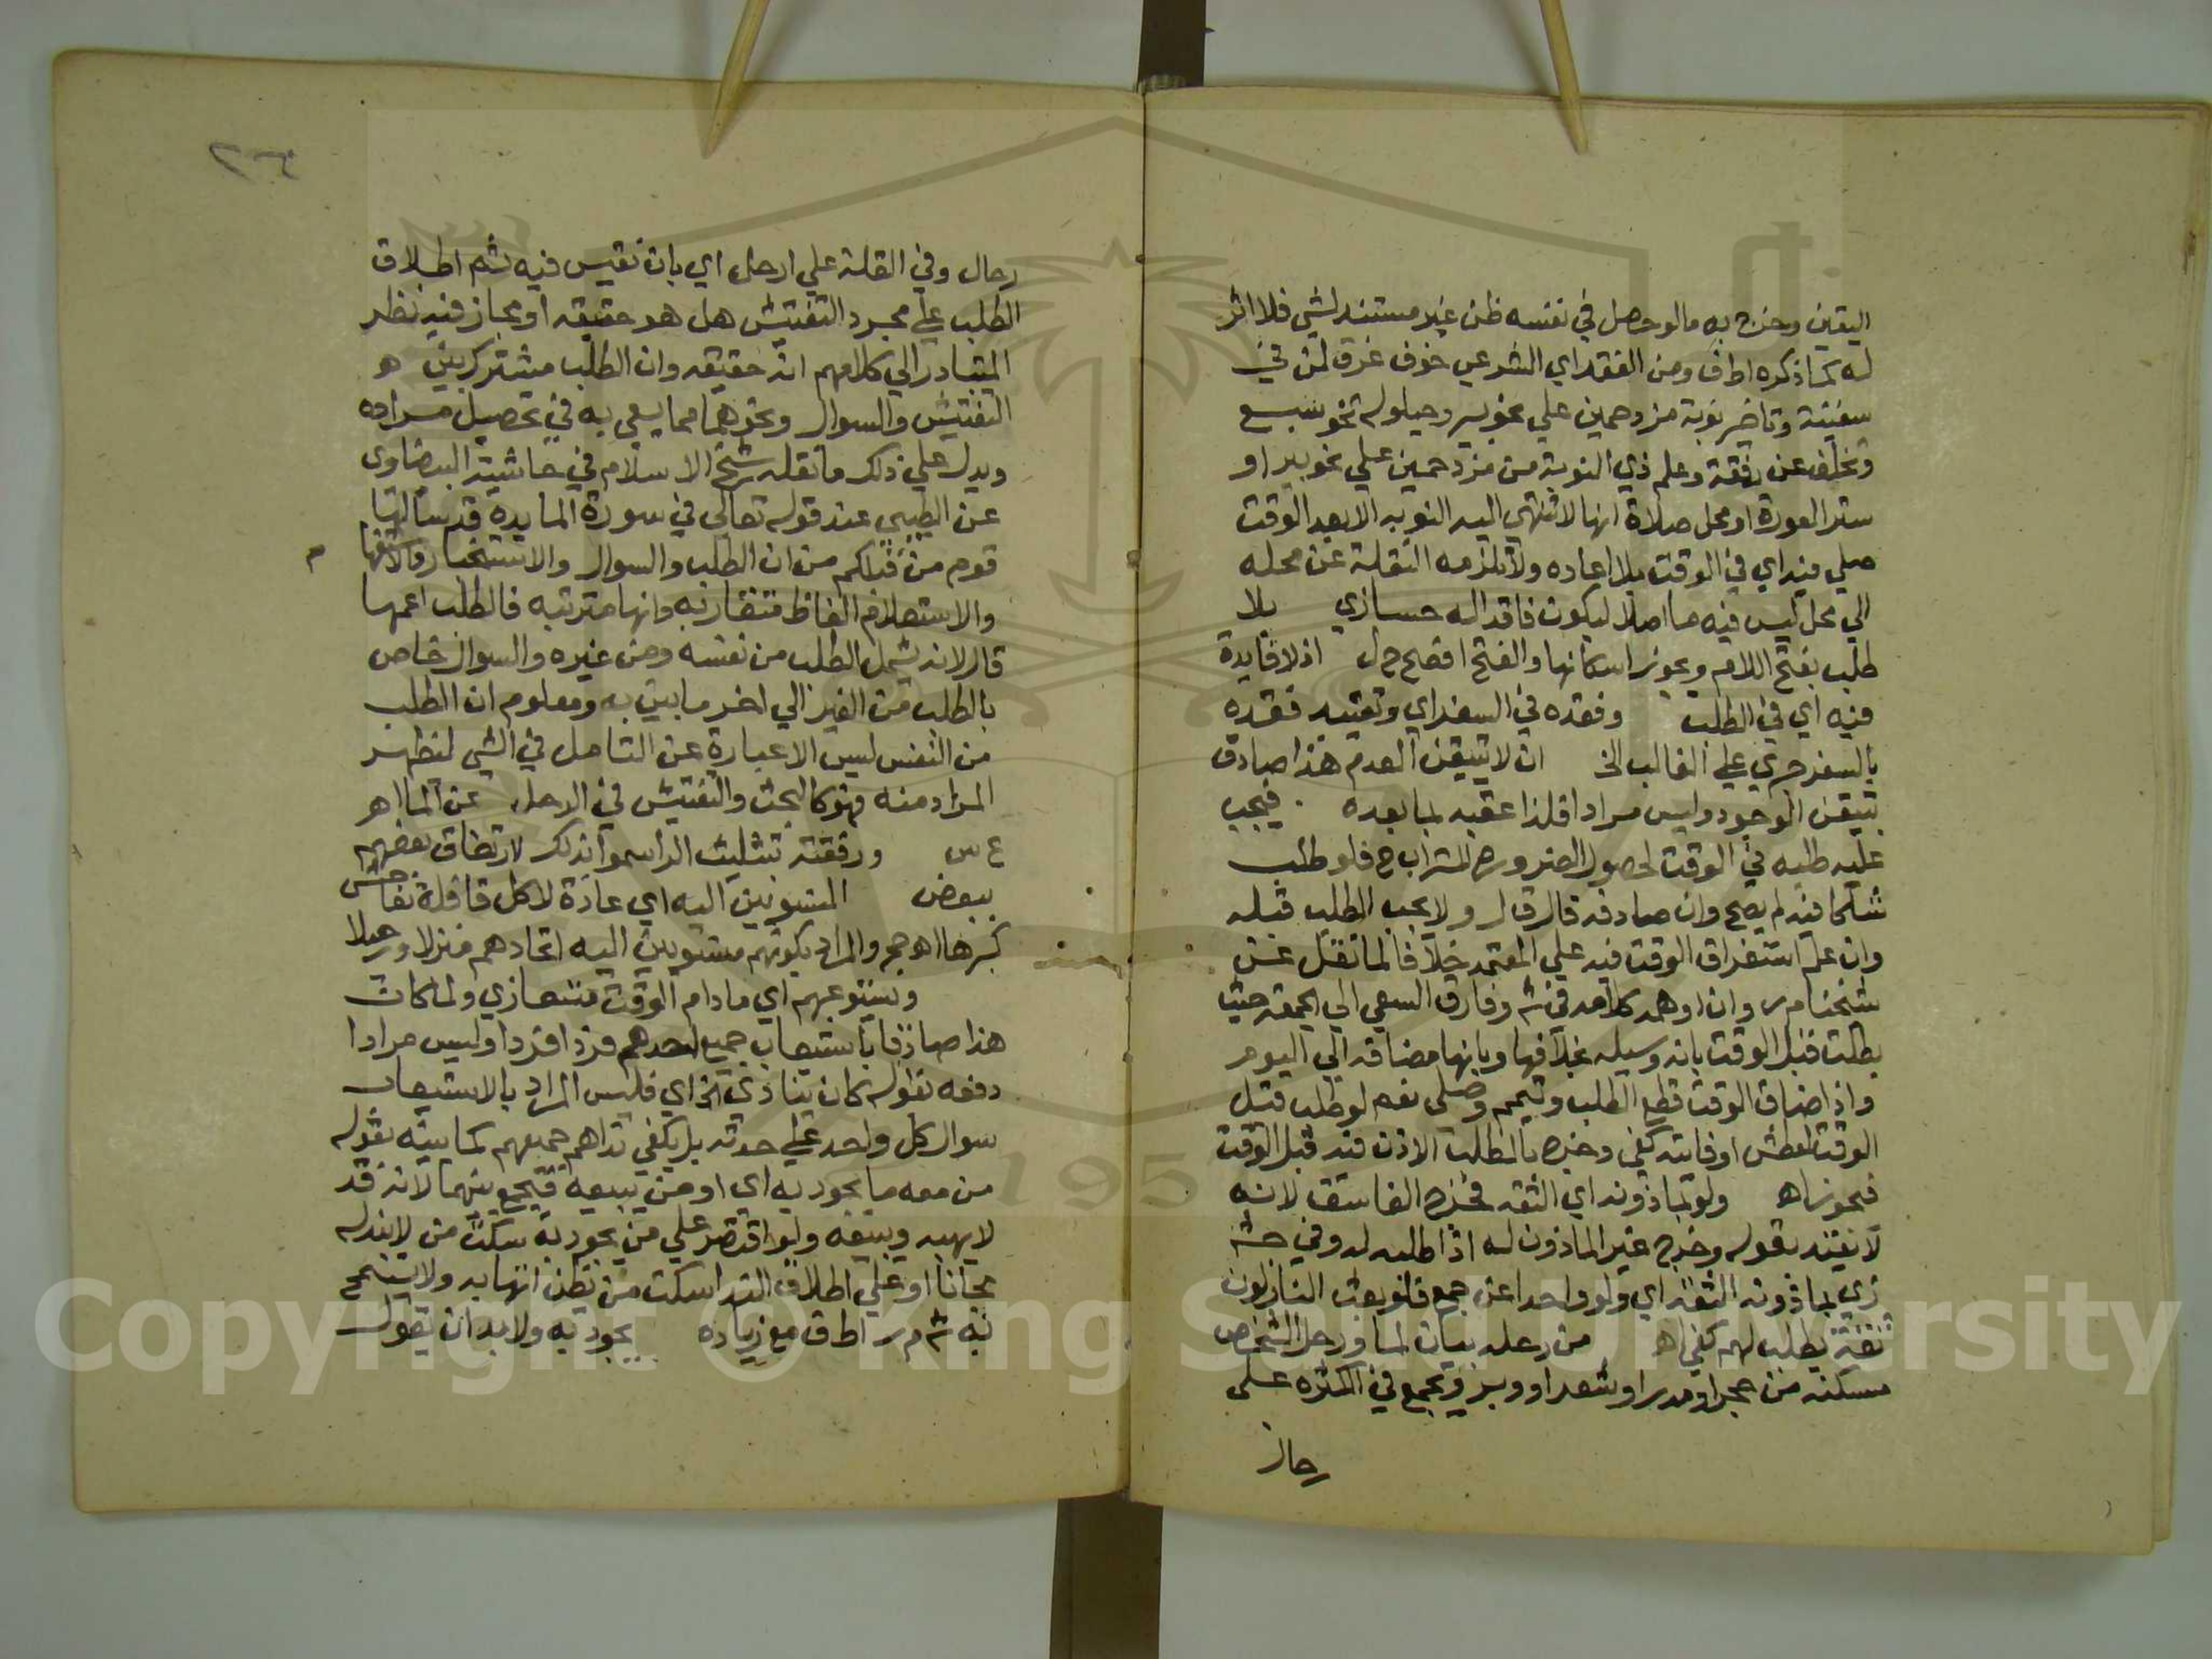 اليقين وخرج به ما لو حصل في نفسه ظن غير مستند لشي فلا اثر
له كما ذكره اط ف ومن الفقد اي الشرعي خوف غرق لمن في
سفينة وتاخر نوبة مزدحمين علي نحو بير وحيلولة نحو سبع
وتخلف عن رفقة وعلم ذي النوبة من مزدحمين علي نحو بير او
ستر العورة او محل صلاة انها لا تنتهي اليه النوبه الا بعد الوقت
صلي فيه اي في الوقت بلا اعاده ولا تلزمه النقلة عن محله
الي محل ليس فيه ما اصلا ليكون فاقدا له حسا زي بلا
طلب بفتح اللام ويجوز اسكانها والفتح افصح ح ل اذ لا فايدة
فيه اي في الطلب وفقده في السفر اي وتقييد فقده
بالسفر جري علي الغالب الخ ان لا يتيقن العدم هذا صادق
بتيقن الوجود وليس مرادا فلذا عقبه بما بعده فيجب
عليه طلبه في الوقت لحصول الضروره للتراب ح فلو طلب
شاكا فيه لم يصح وان صادفه قال ق ل ولا يجب الطلب قبله
وان علم استغراق الوقت فيه علي المعتمد خلافا لما نقل عن
شيخنا م ر وان اوهمه كلامه في ش وفارق السعي الي الجمعة حيث
بطلت قبل الوقت بانه وسيله بخلافها وبانها مضافه الي اليوم
واذا ضاق الوقت قطع الطلب وتيمم وصلي نعم لو طلب قبل
الوقت لعطش او فايته كفي وخرج بالطلب الاذن فيه قبل الوقت
فيجوز اه ولو بماذونه اي الثقه فخرج الفاسق لانه
لا يقبل بقوله وخرج غير الماذون له اذا طلب له وفي حش
زي بماذونه الثقه اي ولو واحدا عن جمع فلو بعث النازلون
ثقة يطلب لهم كفي اه من رحله بيان لما ورحل الشخص
مسكنه من حجر او مدر او شعر او وبر ويجمع في الكثره علي
رحال
٢٣٠
رحال وفي القلة علي ارحل اي بان يفتش فيه ثم اطلاق
الطلب علي مجرد التفتيش هل هو حقيقه او مجاز فيه نظر
المتبادر الي كلامهم انه حقيقه وان الطلب مشترك بين هو
التفتيش والسوال ونحوهما مما يسعي به في تحصيل مراده
ويدل علي ذلك ما نقله شيخ الاسلام في حاشية البيضاوي
عن الطيبي عند قوله تعالي في سورة المايدة قد سالها
قوم من قبلكم من ان الطلب والسوال والاستخبار والاستفهام
والاستعلام الفاظ متقاربه وانها مترتبه فالطلب اعمها
قال لانه يشمل الطلب من نفسه ومن غيره والسوال خاص
بالطلب من الغير الي اخر ما بين به ومعلوم ان الطلب
من النفس ليس الا عبارة عن التامل في الشي لتظهر
المراد منه فهو كالبحث والتفتيش في الرحل عن الما اه
ع ش ورفقته بتثليث الرا سموا بذلك لارتفاق بعضهم
ببعض المنسوبين اليه اي عادة لا كل قافلة تفاحش
كبرها اه حجر والمراد بكونهم منسوبين اليه اتحادهم منزلا ورحيلا
ويستوعبهم اي مادام الوقت متسعا زي ولما كان
هذا صادقا باستيعاب جميع احدهم فردا فردا وليس مرادا
دفعه بقوله كان ينادي الخ اي فليس المراد بالاستيعاب
سوال كل واحد علي حدته بل يكفي نداهم جميعهم كما بينه بقوله
من معه ما يجود به اي او من يبيعه فيجمع بينهما لانه قد
لا يهبه ويبيعه ولو اقتصر علي من يجود به سكت من لا يبذله
مجانا او علي اطلاق الندا سكت من يظن اتهابه ولا يسمح
به ش م ر اط ف مع زياده يجود به ولا بد ان يقول